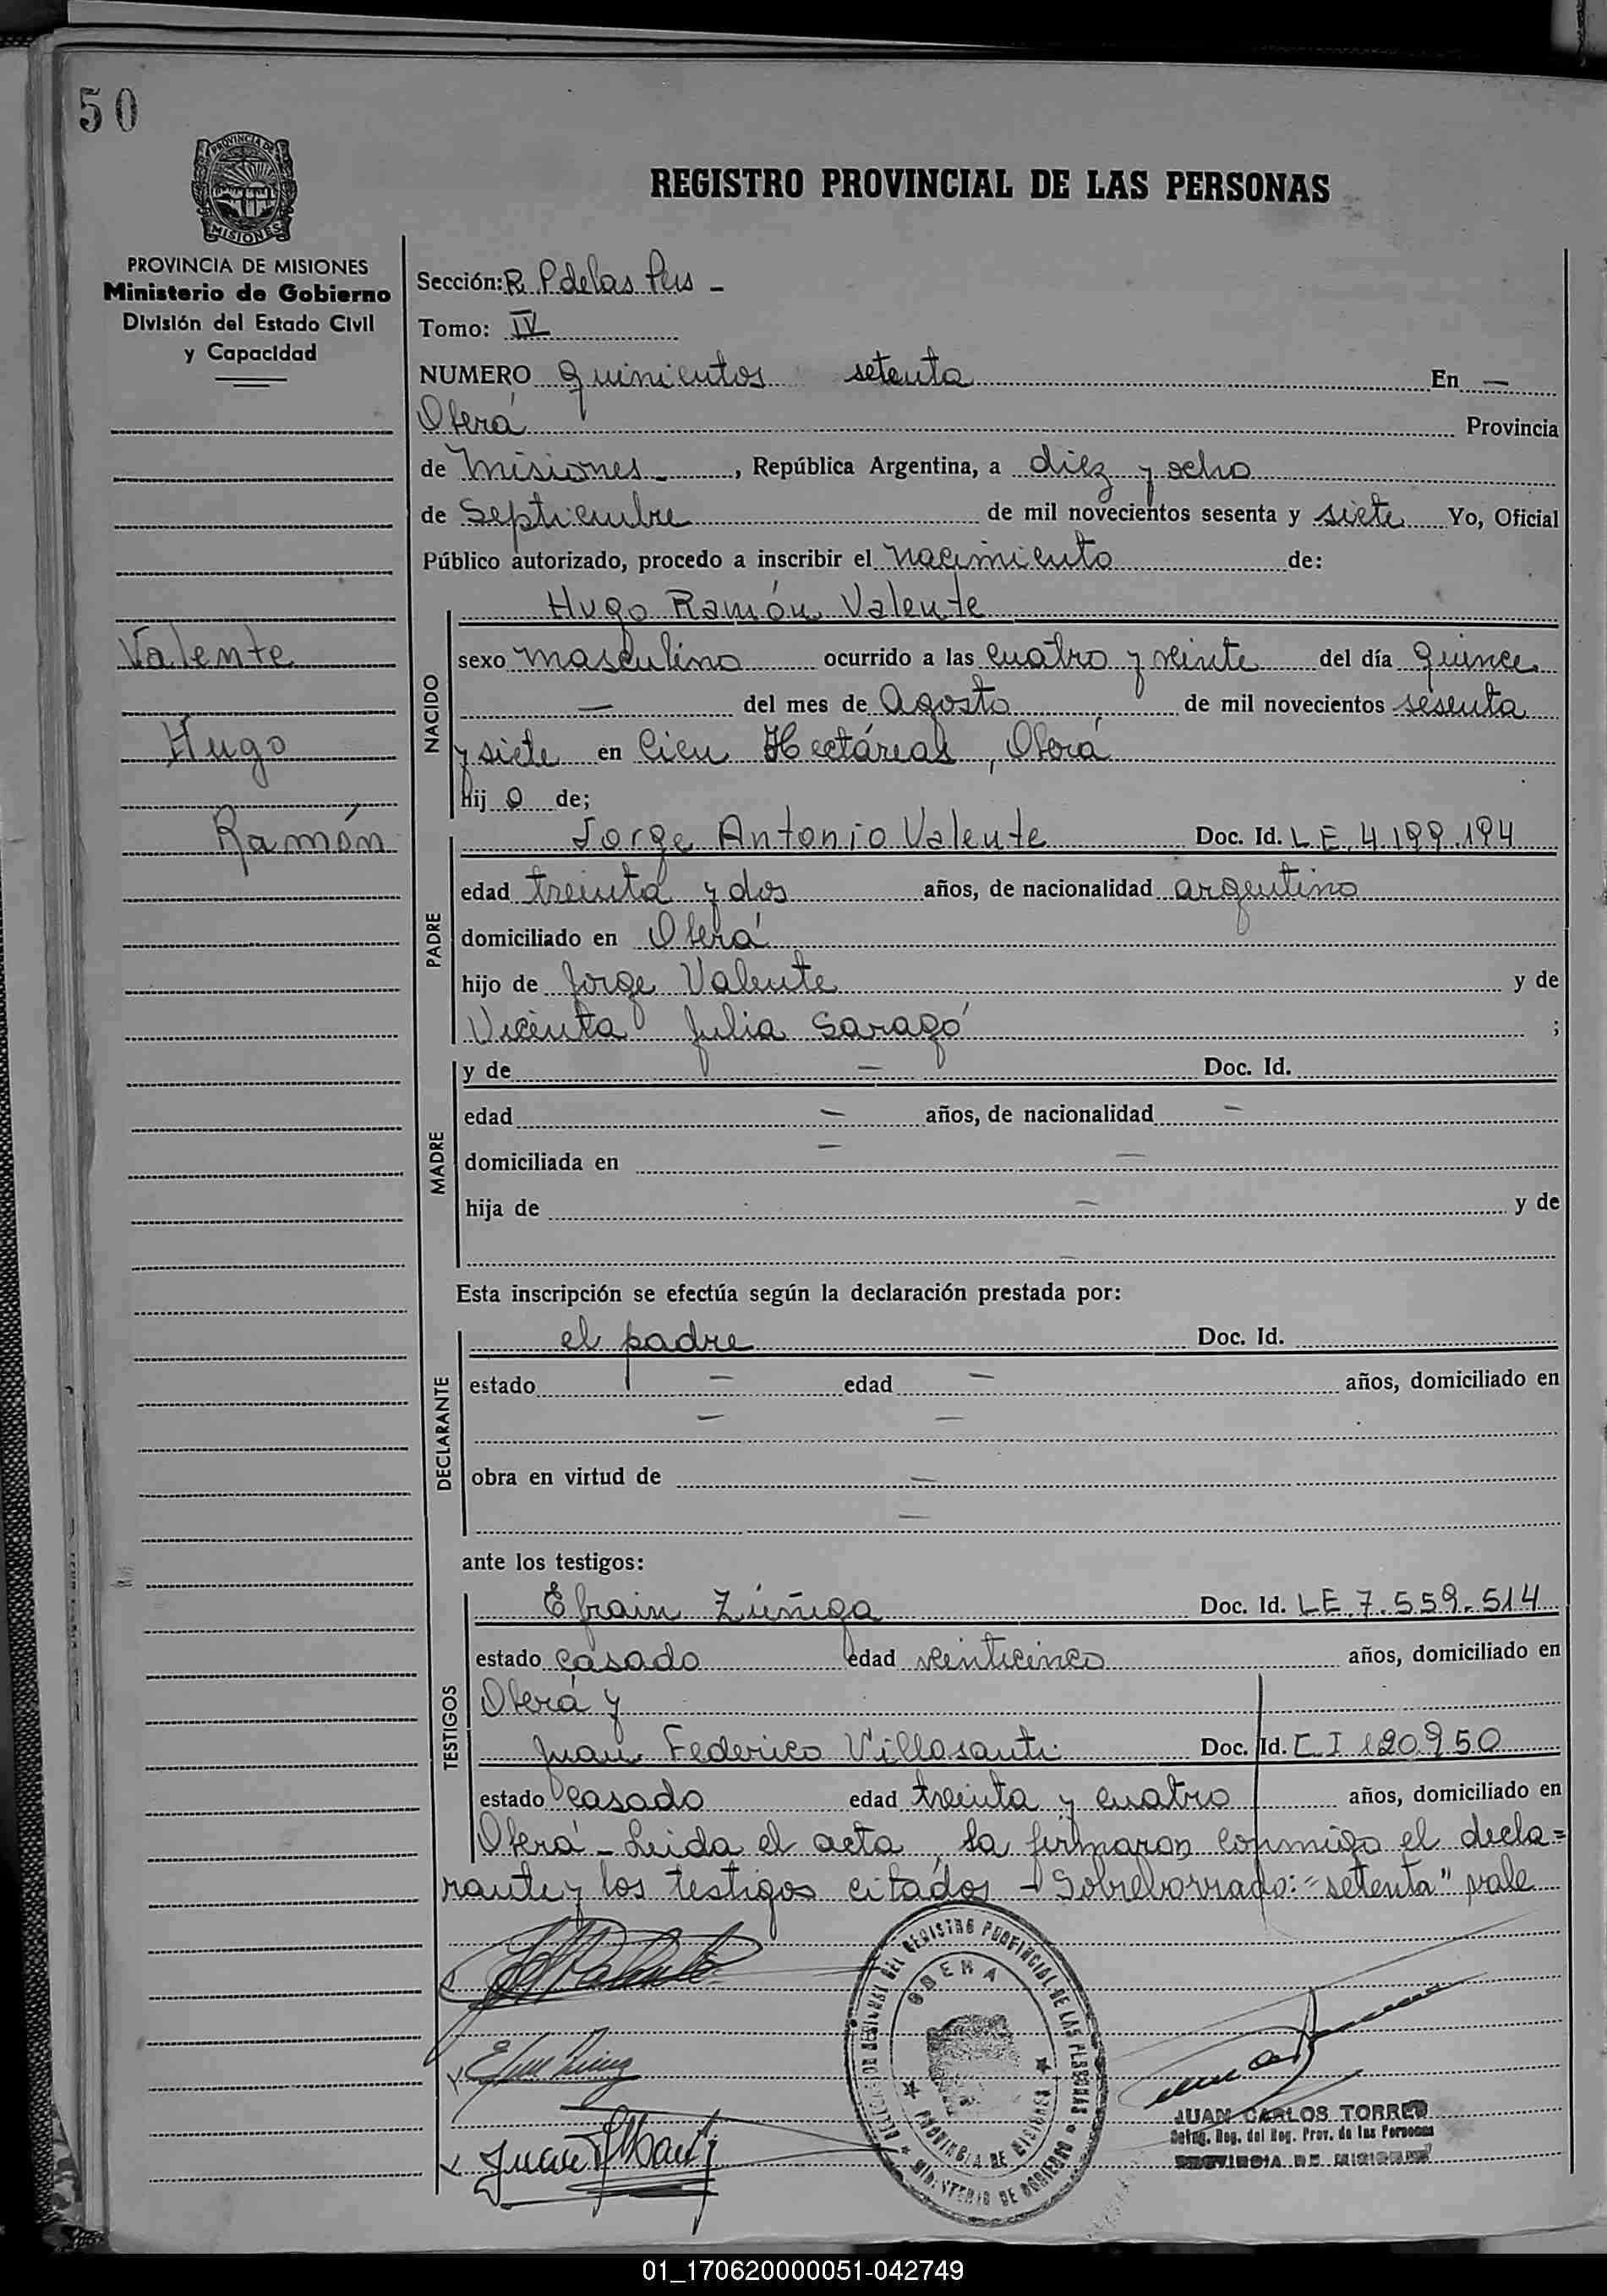 50
PROVINCIA DE
MISIONES
REGISTRO PROVINCIAL DE LAS PERSONAS
PROVINCIA DE MISIONES
Ministerio de Gobierno
División del Estado Civil
y Capacidad
Valente
Hugo
Ramón
Sección: R. P de las Pers -
Tomo: IV
NUMERO quinientos setenta En —
Oberá Provincia
de Misiones - , República Argentina, a diez y ocho
de Septiembre de mil novecientos sesenta y siete Yo, Oficial
Público autorizado, procedo a inscribir el nacimiento de:
NACIDO
Hugo Ramón Valente
sexo masculino ocurrido a las cuatro y veinte del día quince
— del mes de Agosto de mil novecientos sesenta
y siete en Cien Hectáreas, Oberá
hij o de;
PADRE
Jorge Antonio Valente Doc. Id. L E. 4.199.194
edad treinta y dos años, de nacionalidad argentino
domiciliado en Oberá
hijo de Jorge Valente y de
Vicenta Julia Saragó ;
MADRE
y de — Doc. Id.
edad — años, de nacionalidad —
domiciliada en —
hija de — y de
Esta inscripción se efectúa según la declaración prestada por:
DECLARANTE
el padre Doc. Id.
estado — edad — años, domiciliado en
— —
obra en virtud de —
—
ante los testigos:
TESTIGOS
Efrain Zúñiga Doc. Id. L.E. 7.559.514
estado casado edad veinticinco años, domiciliado en
Oberá y
Juan Federico Villasanti Doc. Id. C I 120950
estado casado edad treinta y cuatro años, domiciliado en
Oberá - Leida el acta, la firmaron conmigo el decla=
rante y los testigos citados - Sobreborrado: "setenta" vale
DELEGACION REGIONAL DEL REGISTRO PROVINCIAL DE LAS PERSONAS
OBERA
PROVINCIA DE MISIONES
MINISTERIO DE GOBIERNO
JUAN CARLOS TORRES
Deleg. Reg. del Reg. Prov. de las Personas
PROVINCIA DE MISIONES
01_170620000051-042749